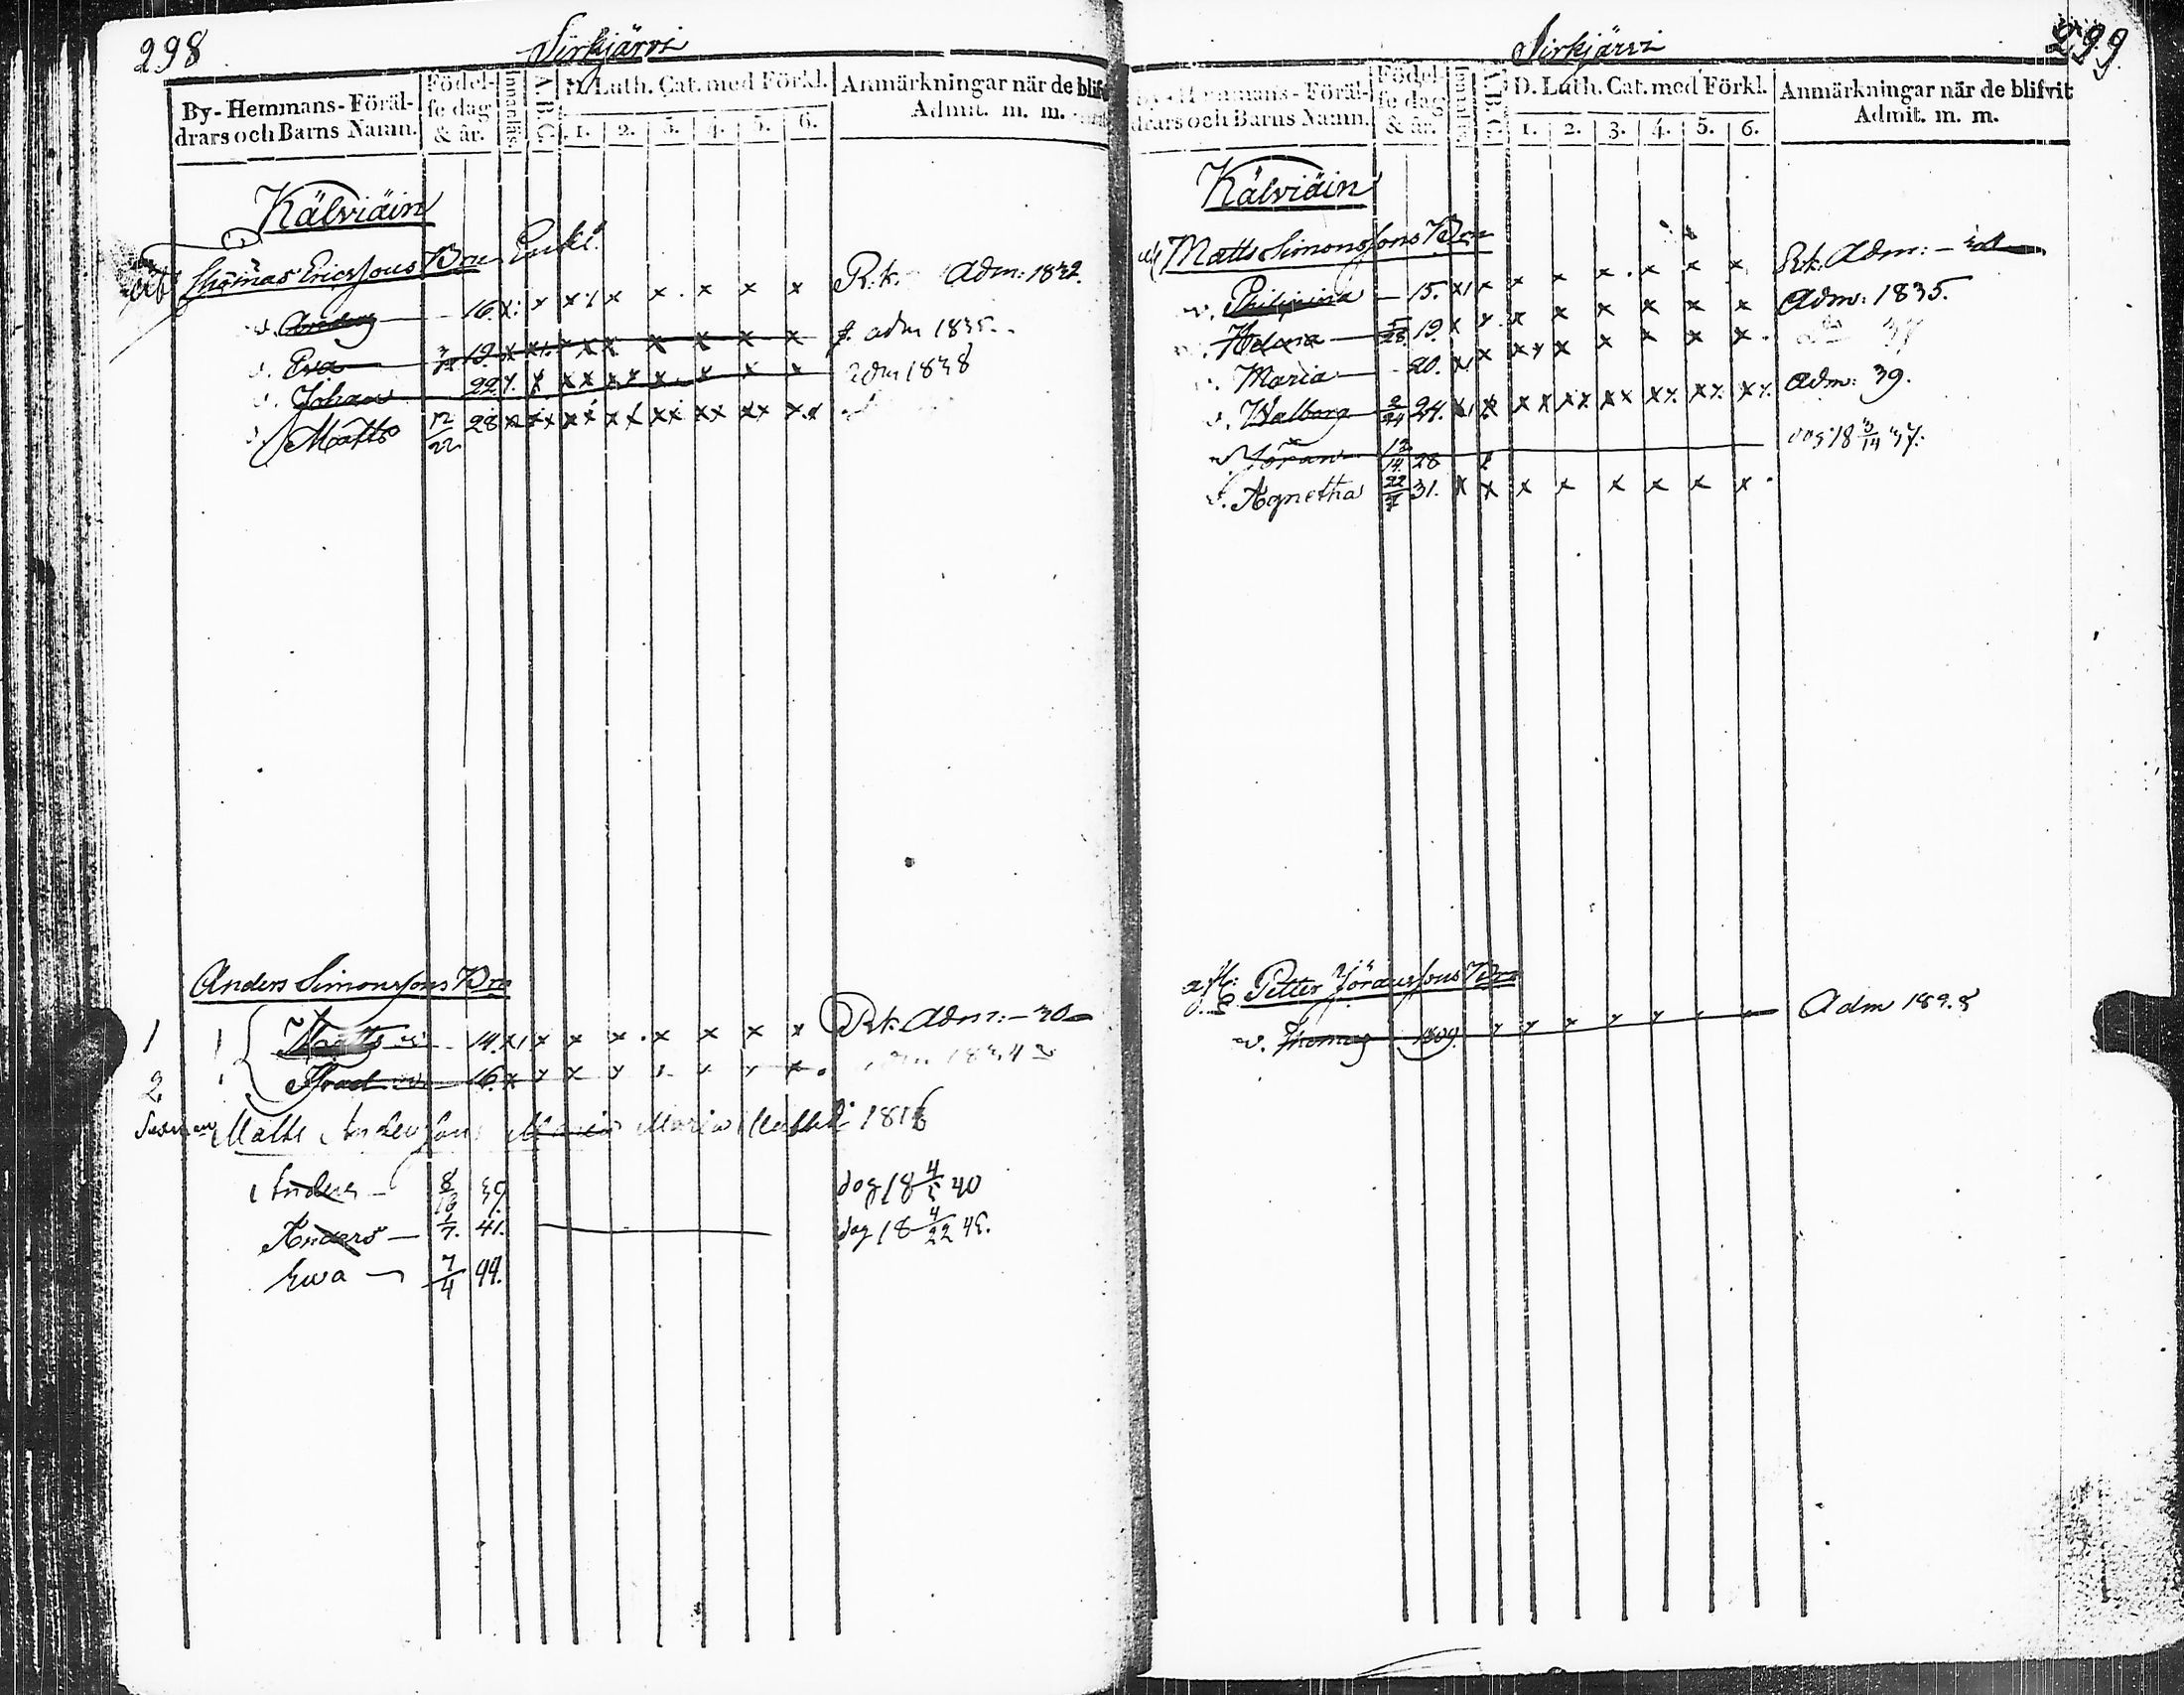 298
Sirkjärvi
By-Hemmans-Föräl-
drars och Barns Namn.
Födel-
se dag
& år.
Innanläs.
A.B.C.
D. Luth. Cat. med Förkl.
1. 2. 3. 4. 5. 6.
Anmärkningar när de
Admit. m. m.
Kälviäin
Thomas Ericssons Brn Enkl.
v. 16. x x x x x x x x R.k. Adm: 1832.
v. Eva 19. x x x x x x x adm 1835.
v. Johan 22 x x x x x x x adm 1838
v. Matts 12/22 28 x x x x x x x x
Anders Simonssons Brn
1 Matts v. 14. x x x x x x x x R.k. Adm: - 30
2 16. x x x x
Matts Anderssons Maria 1816
Anders - 8 39. dog 18 4/5 40
Anders - 1/7. 41. dog 18 4/22 45.
Ewa - 7/4 44.
299
Sirkjärvi
By-Hemmans-Föräl-
drars och Barns Namn.
Födel-
se dag
& år.
Innanläs.
A.B.C.
D. Luth. Cat. med Förkl.
1. 2. 3. 4. 5. 6.
Anmärkningar när de blifvit
Admit. m. m.
Kälviäin
Matts Simonssons Brn
v. Philipina - 15. x x x x x x x x R.k. Adm: -
v. Helena 5/28 19. x x x x x x x x Adm: 1835.
v. Maria - 20. x x x x x x x x
v. Walborg 2/24 24. x x x x x x x x Adm: 39.
v. Jöran 12/14 28 dog 18 3/14 37.
v. Agnetha 22/7 31. x x x x x x x x
Petter Jöranssons Brn
v. Thomas 1809. Adm